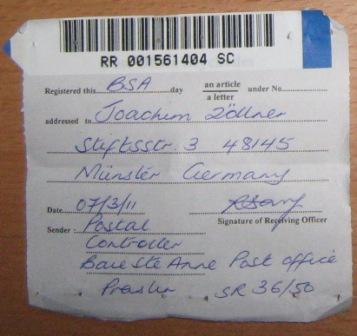 RR 001561404 SC
Registered this BSA day an article under No
a letter
addressed to Joachim Zöllner
Stiftsstr. 3 48145
Münster Germany
Date 07/3/11
Signature of Receiving Officer
Sender: Postal
Controller
Baie Ste Anne Post office
Praslin SR 36/50